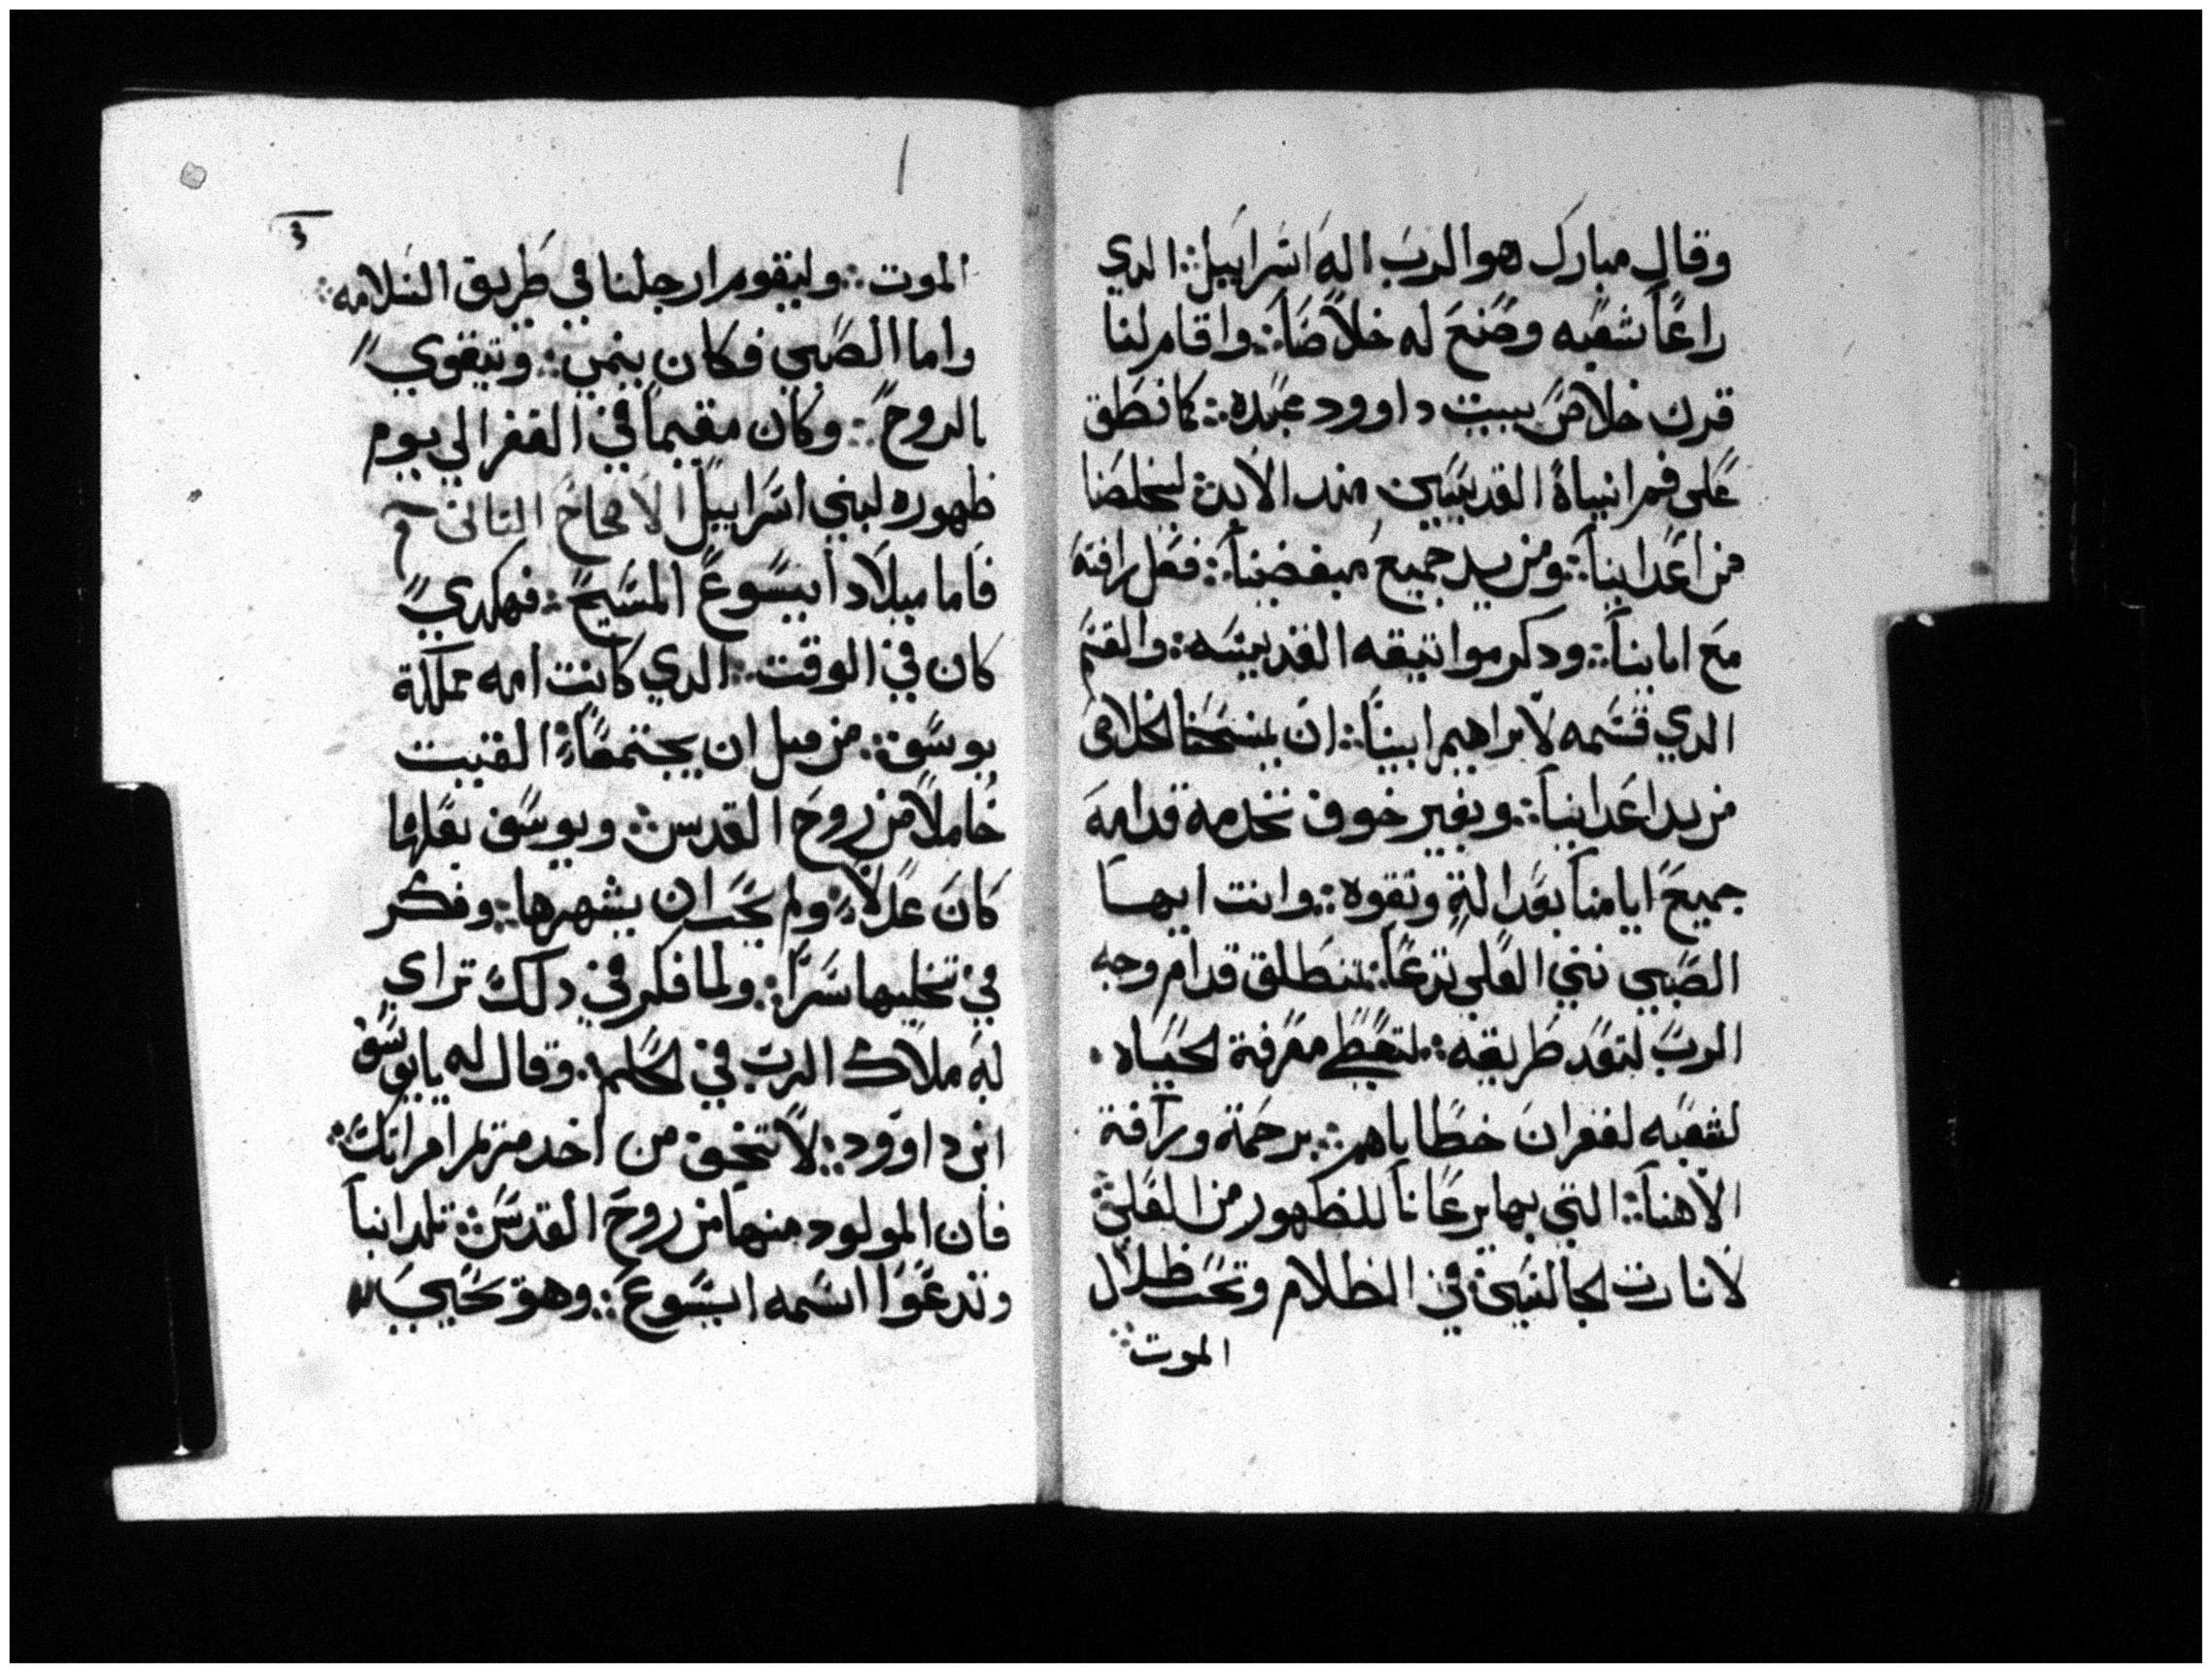 وقال مبارك هو الرب اله اسراييل ∴ الدي
راعا شعبه وصنع له خلاصا ∴ واقام لنا
قرن خلاص ببيت داوود عبده ∴ كما نطق
على فم انبياه القديسين مند الابد ليخلصنا
من اعداينا ∴ ومن يد جميع مبغضينا ∴ فعل رافه
مع اباينا ∴ ودكر مواتيقه القديسه ∴ والقسم
الدي قسمه لابراهيم ابينا ∴ ان يمنحنا الخلاص
من يد اعداينا ∴ وبغير خوف نخدمه قدامه
جميع ايامنا بعدالة وتقوه ∴ وانت ايها
الصبي نبي العلي تدعا ∴ تنطلق قدام وجه
الرب لتعد طريقه ∴ لتعطي معرفة الحياه ∙
لشعبه لغفران خطاياهم ∴ برحمة ورآفة
الاهنا ∴ التي بها يرعانا للظهور من العلي
لانارت الجالسين في الظلام وتحت ظلال
الموت
١
٣
الموت ∴ وليقوم ارجلنا في طريق السلامه ∴
واما الصبي فكان ينمي ∴ ويتقوي
بالروح ∴ وكان مقيما في القفر الي يوم
ظهوره لبني اسراييل الاصحاح التاني
فاما ميلاد ايسوع المسيح ∴ فهكدي
كان في الوقت ∴ الدي كانت امه مملكة
يوسف ∴ من قبل ان يجتمعا ∴ القيت
حاملا من روح القدس ∴ ويوسف بعلها
كان عدلا ∴ ولم يحب ان يشهرها ∴ وفكر
في تخليها سرا ∴ ولما فكر في دلك تراي
له ملاك الرب في الحلم ∴ وقال له يايوسف
ابن داوود ∴ لا تخف من اخد مريم امراتك ∴
فان المولود منها من روح القدس ∴ تلد ابنا
وتدعوا اسمه ايسوع ∴ وهو يحيي